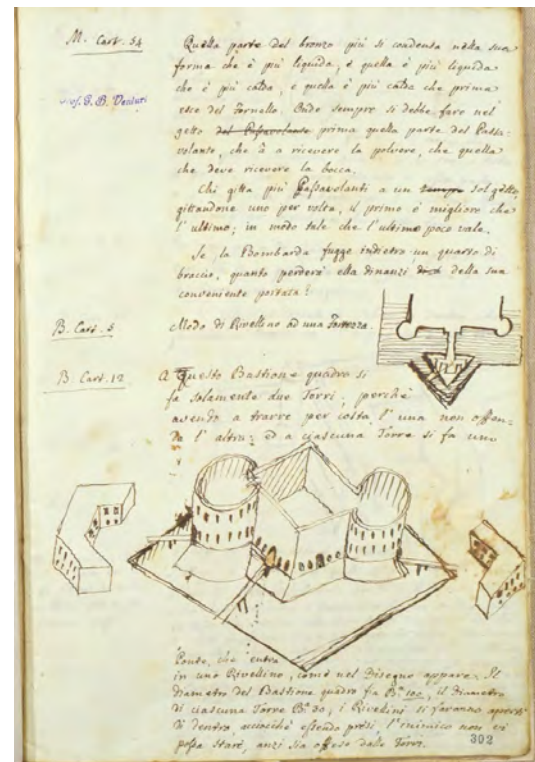 M. Cart. 54
Prof. G. B. Venturi
Quella parte del bronzo più si condensa nella sua
forma che è più liquida, e quella è più liquida
che è più calda, e quella è più calda che prima
esce del Fornello. Onde sempre si debbe fare nel
getto del Passavolante prima quella parte del Passa-
volante, che à a ricevere la polvere, che quella
che deve ricevere la bocca.
Chi gitta più Passavolanti a un sol getto,
gittandone uno per volta, il primo è migliore che
l'ultimo; in modo tale che l'ultimo poco vale.
Se la Bombarda fugge indietro un quarto di
braccio, quanto perderà ella dinanzi della sua
conveniente portata?
B. Cart. 5
Modo di Rivellino ad una Fortezza.
B. Cart. 12
A Questo Bastione quadro si
fa solamente due Torri; perchè
avendo a trarre per costa l'una non offen-
da l'altra; ed a ciascuna Torre si fa uno
Ponte, che entra
in uno Rivellino, come nel Disegno appare. Il
diametro del Bastione quadro fa B.a 100, il diametro
di ciascuna Torre B.a 30, i Rivellini si faranno aperti
di dentro, acciocchè essendo presi, l'inimico non vi
possa stare, anzi sia offeso dalle Torri.
302